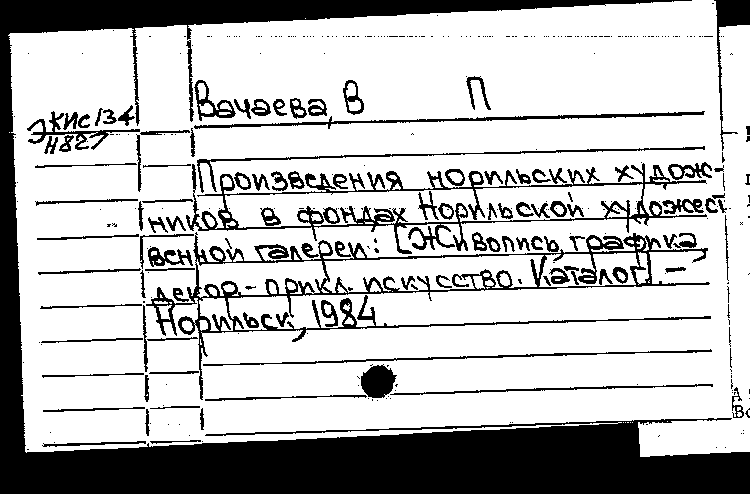 Вачаева, В П
Э КИС 134
Н827
Произведения норильских худож-
ников в фондах Норильской художест
венной галереи: [Живопись, графика,
декор.- прикл. искусство. Каталог]. -
Норильск, 1984.